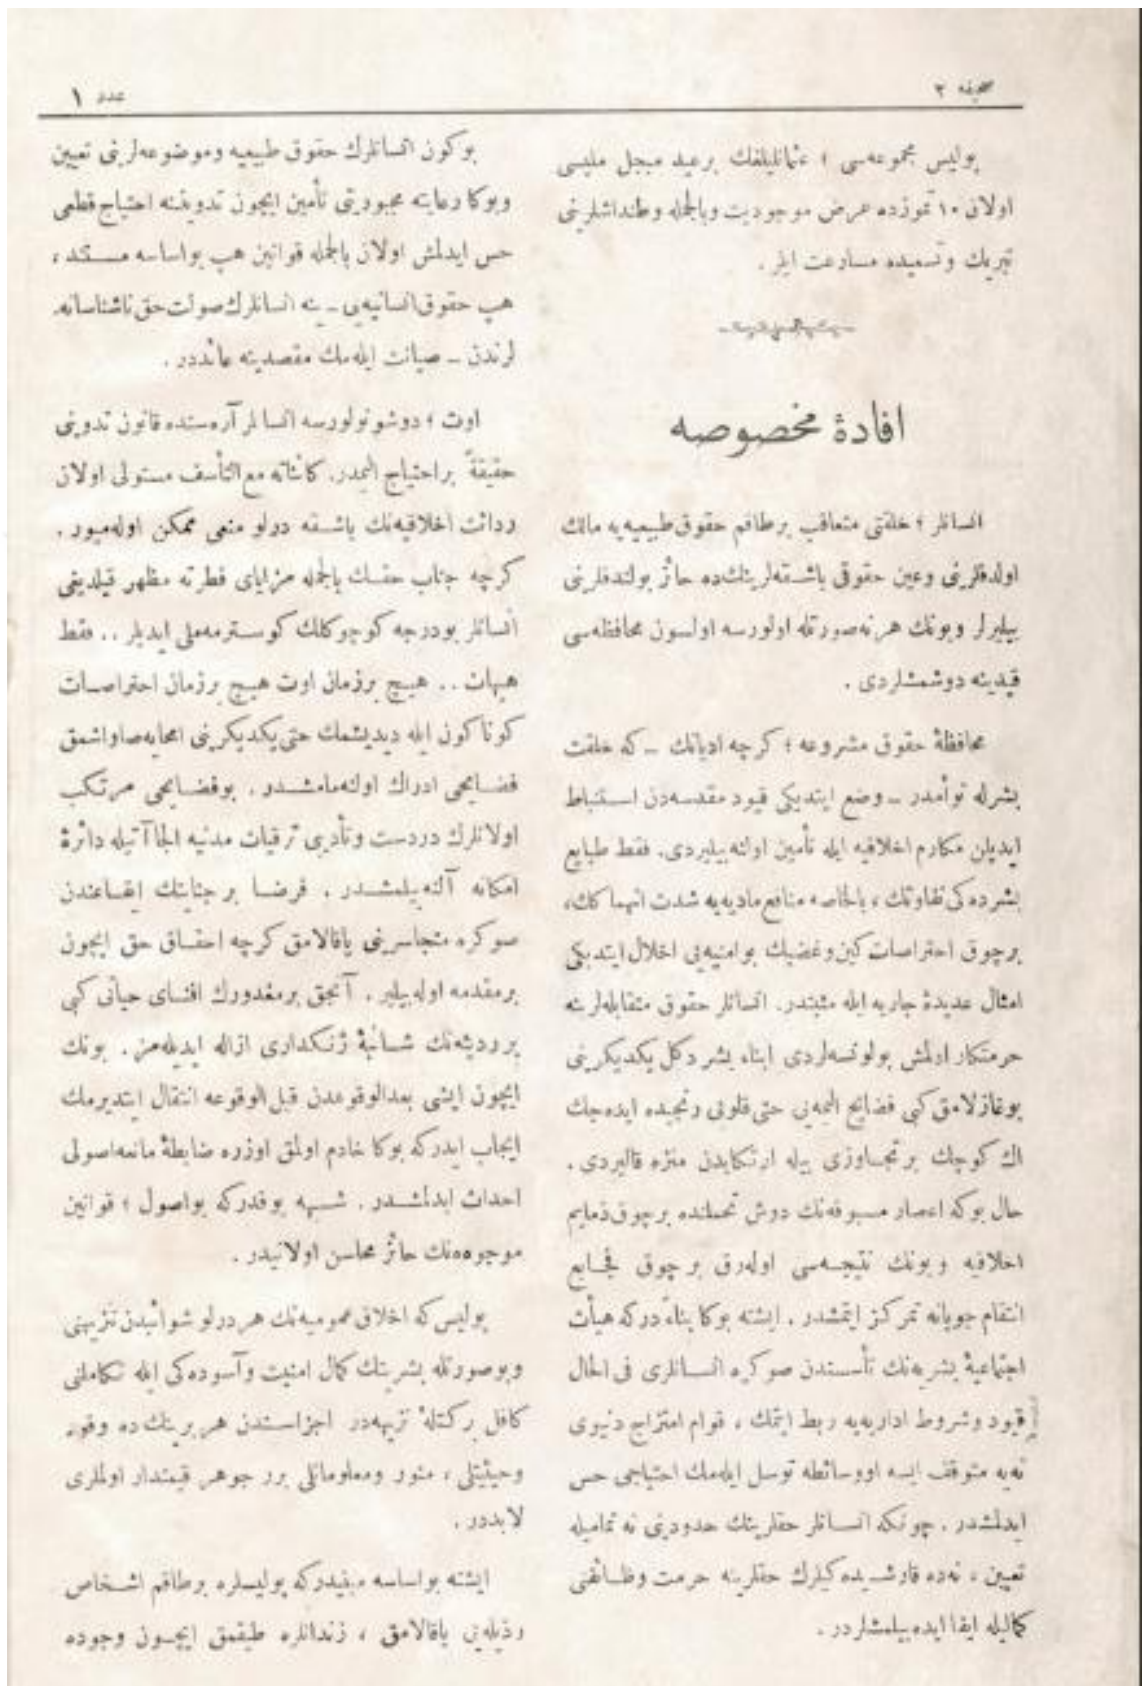 صحيفه ٢
عدد ١
پوليس مجموعه‌سی ؛ عثمانليلغك برعيد مبجل مليسی
اولان ١٠ تموزده عرض موجوديت وبالجمله وطنداشلرينی
تبريك وتسعيده مسارعت ايلر .
افادهٔ مخصوصه
انسانلر ؛ خلقتی متعاقب برطاقم حقوق طبيعيه‌يه مالك
اولدقلرينی وعين حقوقی باشقه‌لرينك‌ده حائز بولندقلرينی
بيليرلر وبونك هرنه‌صورتله اولورسه اولسون محافظه‌سی
قيدينه دوشمشلردی .
محافظهٔ حقوق مشروعه ؛ كرچه اديانك ـ كه خلقت
بشرله توأمدر ـ وضع ايتديكی قيود مقدسه‌دن استنباط
ايديلن مكارم اخلاقيه ايله تأمين اولنه‌بيليردی. فقط طبايع
بشرده‌كی تفاوتك ، بالخاصه منافع ماديه‌يه شدت انهماكك،
برچوق احتراصات كين وغضبك بوامنيه‌یی اخلال ايتديكی
امثال عديدهٔ جاريه ايله مثبتدر. انسانلر حقوق متقابله‌لرينه
حرمتكار اولمش بولونسه‌لردی ابناء بشر دكل يكديكرينی
بوغازلامق كبی فضايح اليمه‌یی حتی قلوبی رنجيده ايده‌جك
اك كوچك برتجاوزی بيله ارتكابدن منزه قاليردی .
حال بوكه اعصار مسبوقه‌نك دوش تحملنده برچوق ذمايم
اخلاقيه وبونك نتيجه‌سی اوله‌رق برچوق فجايع
انتقام جويانه تمركز ايتمشدر . ايشته بوكا بناءً دركه هيأت
اجتماعيهٔ بشريه‌نك تأسسندن صوكره انسانلری فی الحال
قيود وشروط اداريه‌يه ربط ايتمك ، قوام امتزاج دنيوی
نه‌يه متوقف ايسه اووسائطه توسل ايله‌مك احتياجی حس
ايدلمشدر . چونكه انسانلر حقلرينك حدودينی نه تماميله
تعيين ، نه‌ده قارشيده‌كيلرك حقلرينه حرمت وظائفنی
كماليله ايفا ايده‌بيلمشلردر .
بوكون انسانلرك حقوق طبيعيه وموضوعه‌لرينی تعيين
وبوكا رعايته مجبوريتی تأمين ايچون تدوينه احتياج قطعی
حس ايدلمش اولان بالجمله قوانين هپ بواساسه مستند ،
هپ حقوق انسانيه‌یی ـ ينه انسانلرك صولت حق ناشناسانه‌
لرندن ـ صيانت ايله‌مك مقصدينه عائددر .
اوت ؛ دوشونولورسه انسانلر آره‌سنده قانون تدوينی
حقيقةً براحتياج اليمدر. كائناته مع التأسف مستولی اولان
ردائت اخلاقيه‌نك باشقه درلو منعی ممكن اوله‌ميور .
كرچه جناب حقك بالجمله مزايای فطرته مظهر قيلديغی
انسانلر بودرجه كوچوكلك كوسترمه‌ملی ايديلر .. فقط
هيهات .. هيچ برزمان اوت هيچ برزمان احتراصات
كوناكون ايله ديديشمك حتی يكديكرينی امحايه صاواشمق
فضايحی ادراك اولنه‌مامشدر . بوفضايحی مرتكب
اولانلرك دردست وتأديبی ترقيات مدنيه الجاآتيله دائرهٔ
امكانه آلنه‌بيلمشدر . فرضا برجنايتك ايقاعندن
صوكره متجاسرينی ياقالامق كرچه احقاق حق ايچون
برمقدمه اوله‌بيلير . آنجق برمغدورك افنای حياتی كبی
بر ... شائبهٔ ژنكداری ازاله ايديله‌مز . بونك
ايچون ايشی بعدالوقوعدن قبل الوقوعه انتقال ايتديرمك
ايجاب ايدركه بوكا خادم اولمق اوزره ضابطهٔ مانعه اصولی
احداث ايدلمشدر . شبهه يوقدركه بواصول ؛ قوانين
موجوده‌نك حائز محاسن اولانيدر .
پوليس كه اخلاق عموميه‌نك هردرلو شوائبدن تنزيهنی
وبوصورتله بشريتك كمال امنيت وآسوده‌كی ايله تكاملنی
كافل بركتلهٔ نزيهه‌در اجزاسندن هربرينك‌ده وقور
وحيثيتلی ، منور ومعلوماتلی برر جوهر قيمتدار اولملری
لابددر .
ايشته بواساسه مبنيدركه پوليسلره برطاقم اشخاص
رذيله‌یی ياقالامق ، زندانلره طيقمق ايچون وجوده